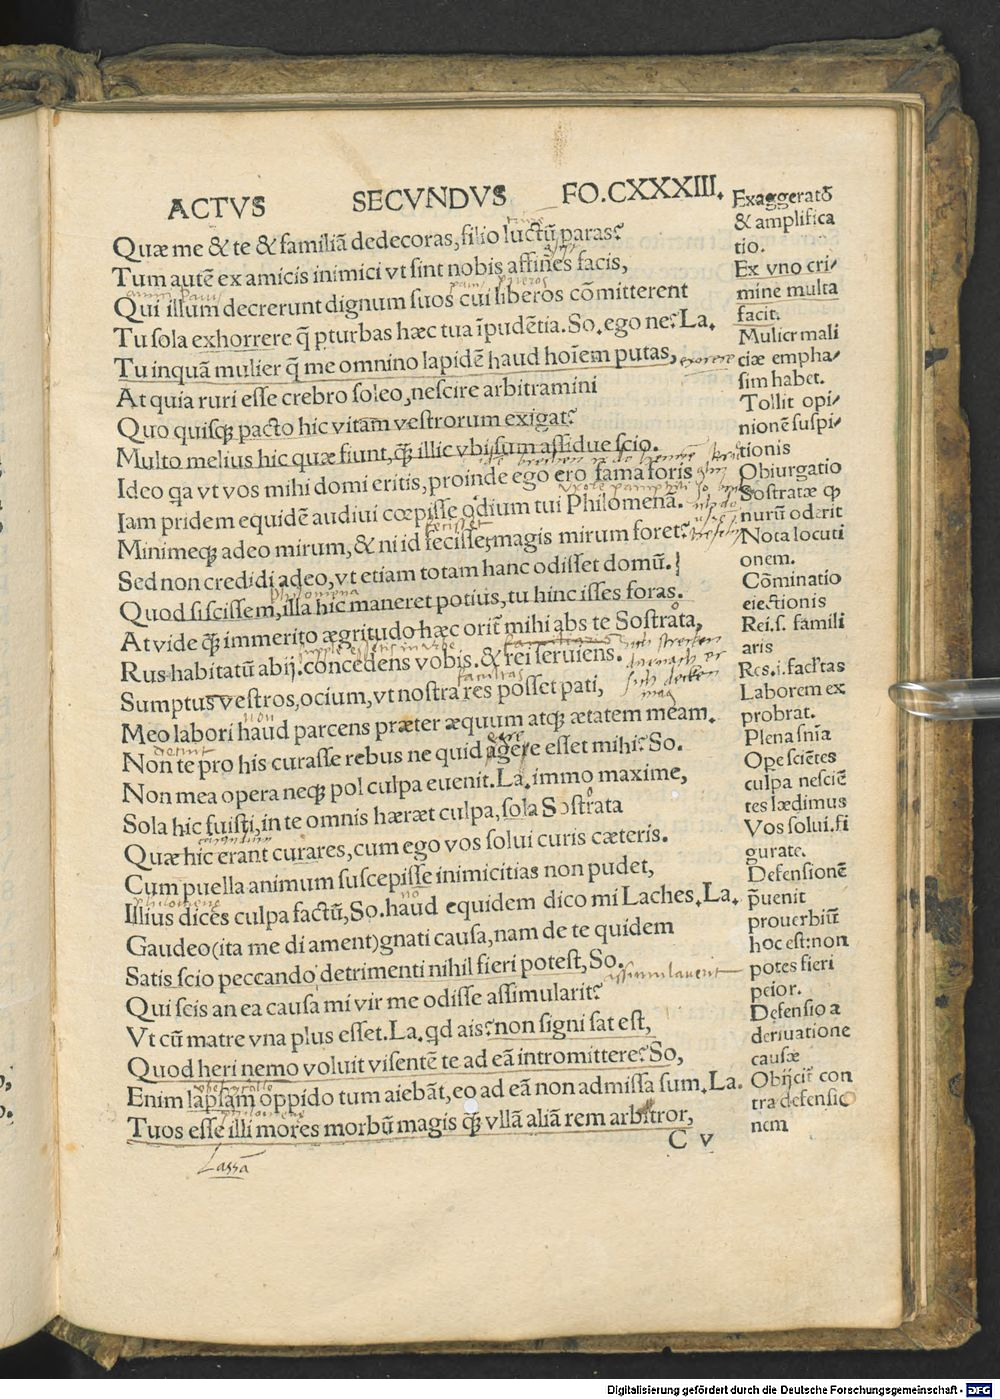 ACTVS SECVNDVS FO.CXXXIII.
Quæ me & te & familiā dedecoras, filio luctū paras?
Tum autē ex amicis inimici vt sint nobis affines facis,
Qui illum decrerunt dignum suos cui liberos cōmitterent
Tu sola exhorrere q̄ pturbas hæc tua īpudētia. So. ego ne? La.
Tu inquā mulier q̄ me omnino lapidē haud hoīem putas,
At quia ruri esse crebro soleo, nescire arbitramini
Quo quisq; pacto hic vitam vestrorum exigat?
Multo melius hic quæ fiunt, q̄ illic vbi sum assidue scio.
Ideo qa vt vos mihi domi eritis, proinde ego ero fama foris
Iam pridem equidē audiui cœpisse odium tui Philomenā.
Minimeq; adeo mirum, & ni id fecisset, magis mirum foret?
Sed non credidi adeo, vt etiam totam hanc odisset domū.
Quod si scissem, illa hic maneret potius, tu hinc isses foras.
At vide q̄ immerito ægritudo hæc orit mihi abs te Sostrata,
Rus habitatū abij. concedens vobis. & rei seruiens.
Sumptus vestros, ocium, vt nostra res posset pati,
Meo labori haud parcens præter æquum atq; ætatem meam.
Non te pro his curasse rebus ne quid ægre esset mihi? So.
Non mea opera neq; pol culpa euenit. La. immo maxime,
Sola hic fuisti, in te omnis hæret culpa, sola Sostrata
Quæ hic erant curares, cum ego vos solui curis cæteris.
Cum puella animum suscepisse inimicitias non pudet,
Illius dices culpa factū, So. haud equidem dico mi Laches. La.
Gaudeo (ita me di ament) gnati causa, nam de te quidem
Satis scio peccando detrimenti nihil fieri potest, So.
Qui scis an ea causa mi vir me odisse assimularit?
Vt cū matre vna plus esset. La. qd ais? non signi sat est,
Quod heri nemo voluit visentē te ad eā intromittere? So,
Enim lapsam oppido tum aiebāt, eo ad eā non admissa sum. La.
Tuos esse illi mores morbū magis q̄ vllā aliā rem arbitror,
C v
Lassā
Exaggeratō
& amplifica
tio.
Ex vno cri-
mine multa
facit.
Mulier mali
ciæ empha-
sim habet.
Tollit opi-
nionē suspi-
tionis
Obiurgatio
Sostratæ q̄
nurū oderit
Nota locuti
onem.
Cōminatio
eiectionis
Rei. s. famili
aris
Res. i. facl̄tas
Laborem ex
probrat.
Plena snīa
Ope sciētes
culpa nesciē
tes lædimus
Vos solui. fi
gurate.
Defensionē
p̄uenit
prouerbiū
hoc est: non
potes fieri
peior.
Defensio a
deriuatione
causæ
Obijcit con
tra defensio
nem
philomena
haud
assimulauerit
philomene